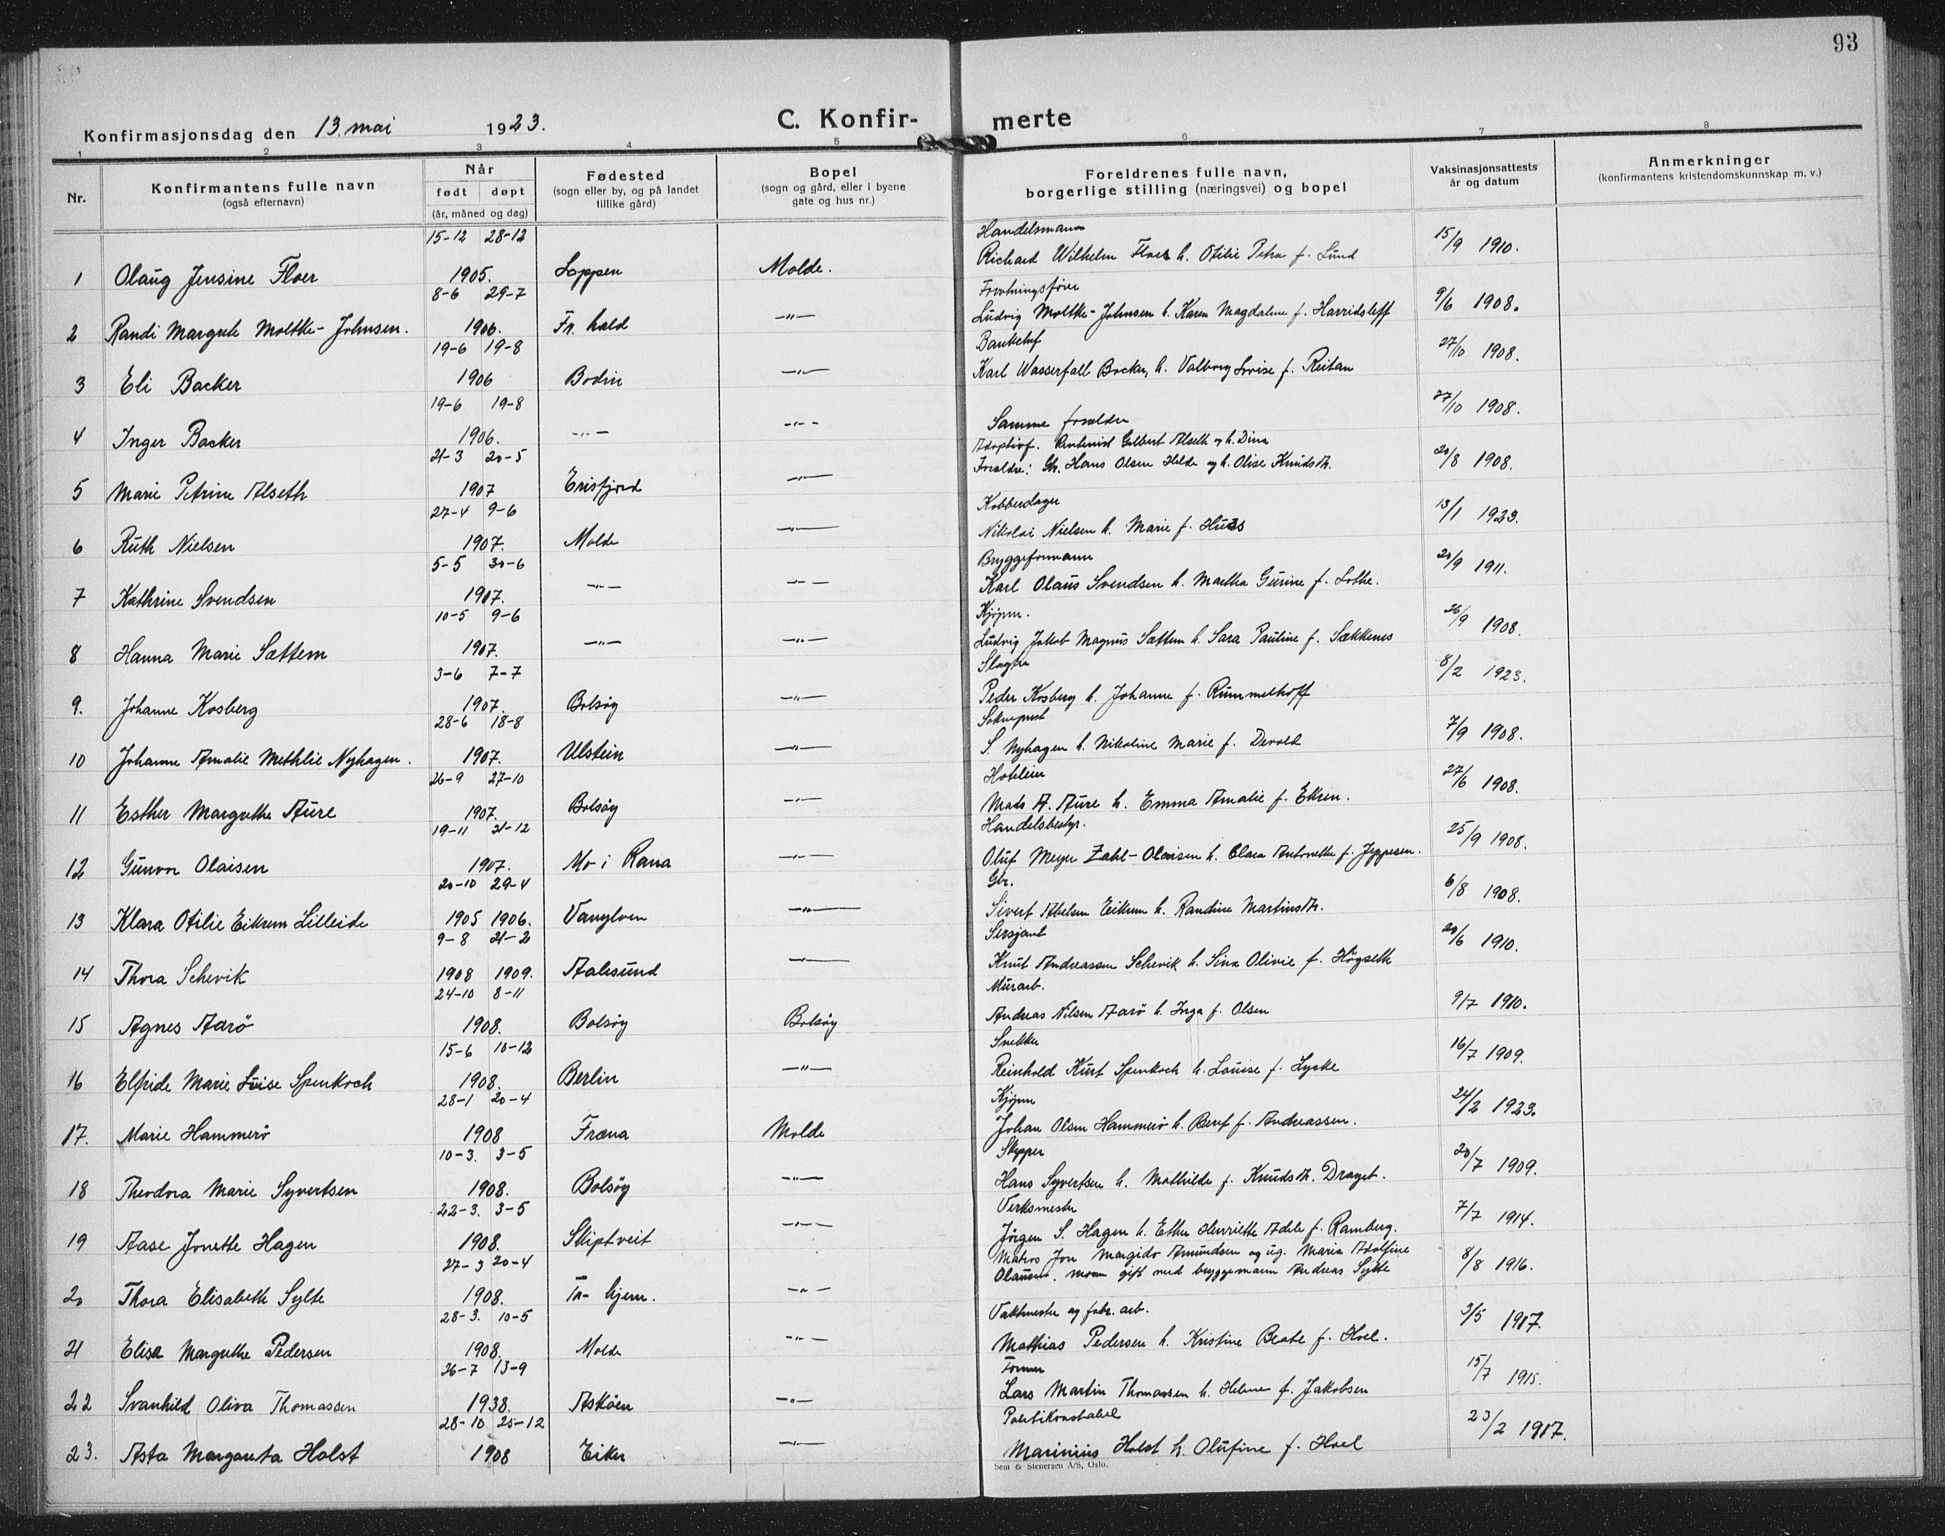 93
Konfirmasjonsdag den 13. mai 1923. C. Konfir- merte
1 2 3 4 5 6 7 8
Nr. Konfirmantens fulle navn (også efternavn) Når født døpt (år, måned og dag) Fødested (sogn eller by, og på landet tillike gård) Bopel (sogn og gård, eller i byene gate og hus nr.) Foreldrenes fulle navn, borgerlige stilling (næringsvei) og bopel Vaksinasjonsattests år og datum Anmerkninger (konfirmantens kristendomskunnskap m. v.)
15-12 28-12 Handelsmann
1 Olaug Jensine Floer 1905. Loppen Molde. Richard Wilhelm Floer h. Otilie Petra f. Lund 15/9 1910.
8-6 29-7
2 Randi Margrete Moltke-Johnsen. 1906. Fr. hald -"- Ludvig Moltke-Johnsen h. Karen Magdalene f. 9/6 1908.
19-6 19-8 Bankchef
3 Eli Backer 1906 Bodin -"- Karl Wasserfall Backer, h. Valborg Lovise f. Reitan 27/10 1908.
19-6 19-8
4 Inger Backer 1906. -"- -"- Samme forældre 27/10 1908.
21-3 20-5 Adoptivf. Gilbert Alseth og h. Dina
5 Marie Petrine Alseth 1907 Erisfjord -"- Forældre: Hans Olsen Helde og h. Olise Knudsdtr. 20/8 1908.
27-4 9-6 Kobberslager
6 Ruth Nielsen 1907. Molde -"- Nikolai Nielsen h. Marie f. 13/1 1923.
5-5 30-6 Bryggeformann
7 Kathrine Svendsen 1907. -"- -"- Karl Olaus Svendsen h. Martha Gurine f. Lothe. 20/9 1911.
10-5 9-6 Kjøpm.
8 Hanna Marie Sættem 1907. -"- -"- Ludvig Jakob Magnus Sættem h. Sara Pauline f. Sækkenes 26/9 1908.
3-6 7-7 Slagter
9. Johanne Kosberg 1907. Bolsøy -"- Peder Kosberg h. Johanne f. Rummelhoff 8/2 1923.
28-6 18-8 Sokneprest
10 Johanne Amalie Methlie Nyhagen. 1907. Ulstein -"- S. Nyhagen h. Nikoline Marie f. Devold 7/9 1908.
26-9 27-10 Hoteleier
11 Esther Margrethe Aure 1907. Bolsøy -"- Mads A. Aure h. Emma Amalie f. Ekren. 27/6 1908.
19-11 21-12 Handelsbestyr.
12 Gunvor Olaisen 1907. Mo i Rana -"- Oluf Meyer Zahl-Olaisen h. Clara Antonette f. Jeppesen. 25/9 1908.
20-10 29-4 Gbr.
13 Klara Otilie Eikrem Lilleide 1905 1906. Vanylven -"- Sivert Abelsen Eikrem h. Randine Martinsdtr. 6/8 1908.
9-8 21-2 Sersjant
14 Thora Schevik 1908 1909. Aalesund -"- Knut Andreassen Schevik h. Sina Olivie f. Högseth 20/6 1910.
24-10 8-11 Murarb.
15 Agnes Aarø 1908. Bolsøy Bolsøy Andreas Nilsen Aarø h. Inga f. Olsen 9/7 1910.
15-6 10-12 Snekker
16 Elfride Marie Luise Spenkoch 1908. Berlin -"- Reinhold Kurt Spenkoch h. Louise f. Lyske 16/7 1909.
28-1 20-4 Kjøpm
17. Marie Hammerø 1908 Fræna Molde Johan Olsen Hammerø h. f. Andreassen. 24/2 1923.
10-3. 3-5 Skipper
18 Theodora Marie Syvertsen 1908. Bolsøy -"- Hans Syvertsen h. Mathilde f. Knudsdtr. Draget. 20/7 1909.
22-3. 3-5 Verksmester
19 Aase Jonette Hagen 1908. Skiptveit -"- Jörgen S. Hagen h. Henriette Adele f. Ramberg. 7/7 1914.
27-3 20-4 Matros Jon Margido Amundsen og ug. Maria Adolfine
20 Thora Elisabeth Sylte 1908. Tr-hjem. -"- Olausen, moren gift med bryggemann Andreas Sylte 8/8 1916.
28-3. 10-5 Vaktmester og fabr. arb.
21 Elisa Margrethe Pedersen 1908. Molde -"- Mathias Pedersen h. Kristine Beate f. Hoel. 3/5 1917.
26-7 13-9
22 Svanhild Oliva Thomassen 1938. Askøen -"- Lars Martin Thomassen h. Helene f. Jakobsen 15/7 1915.
28-10 25-12 Politikonstabel
23. Asta Margareta Holst 1908 Eiker -"- Marinius Holst h. Olufine f. Hoel 23/2 1917.
Sem & Stenersen A/S, Oslo.